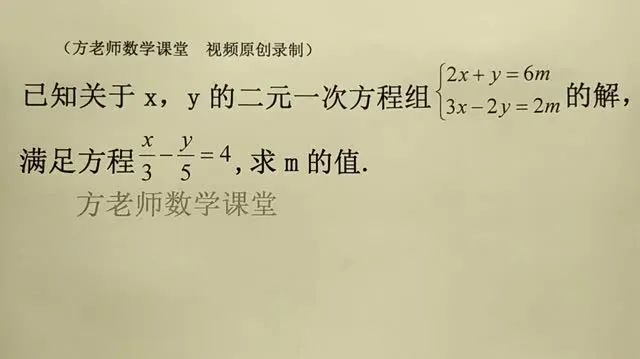 （方老师数学课堂　视频原创录制）
已知关于 x，y 的二元一次方程组{2x+y=6m 3x−2y=2m的解，
满足方程x/3−y/5=4,求 m 的值.
方老师数学课堂